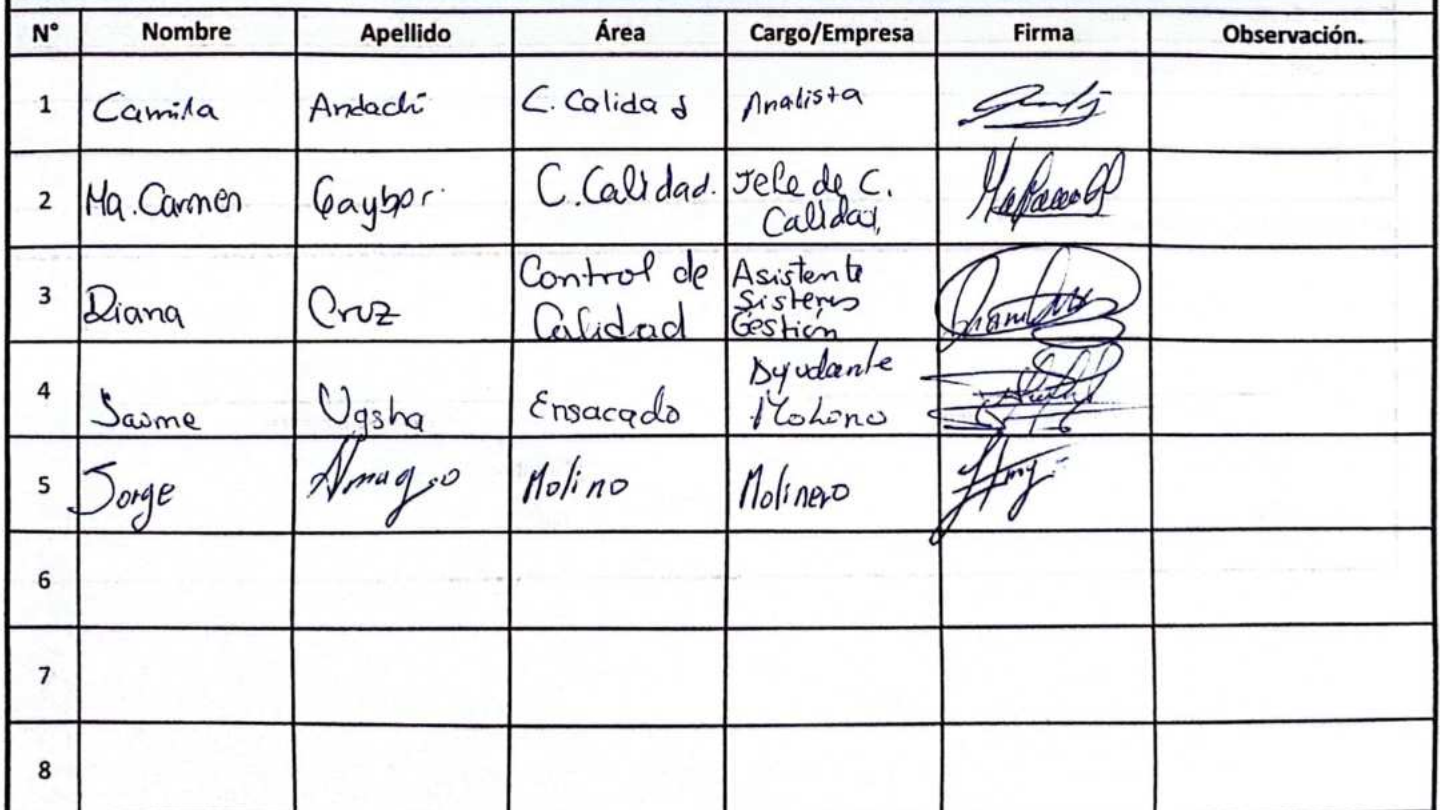 N° Nombre Apellido Área Cargo/Empresa Firma Observación.
1 Camila Andachi C. Calidad Analista
2 Ma. Carmen Gaybor C. Calidad. Jefe de C.
Calidad,
3 Diana Cruz Control de
Calidad Asistente
Sistemas
Gestión
4 Jaime Ugsha Ensacado Ayudante
Molino
5 Jorge Molino Molinero
6
7
8